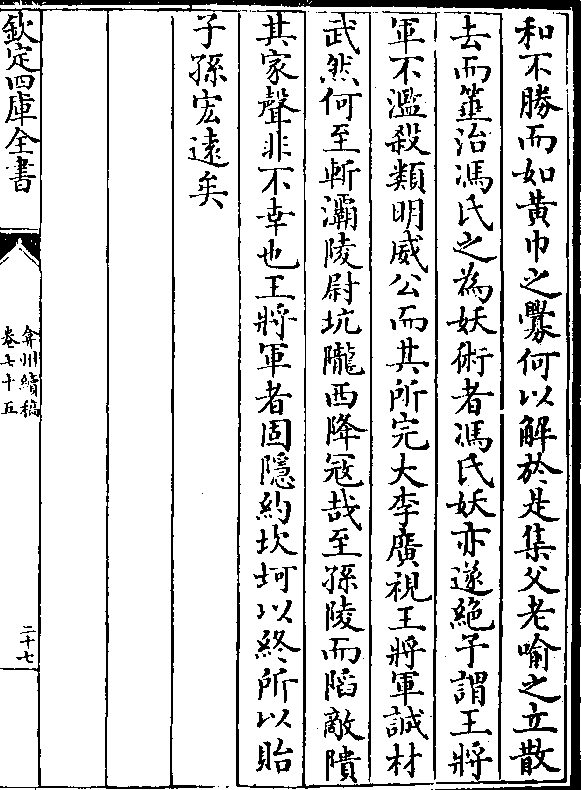 和不勝而如黄巾之釁何以解於是集父老喻之立散
去而箠治馮氏之為妖術者馮氏妖亦遂絕子謂王將
軍不濫殺類明威公而其所完大李廣視王將軍誠材
武然何至斬灞陵尉坑隴西降冦哉至孫陵而䧟敵隤
其家聲非不幸也王將軍者固隱約坎坷以終所以貽
子孫宏逺矣
欽定四庫全書
弇州續稿
卷七十五
二十七